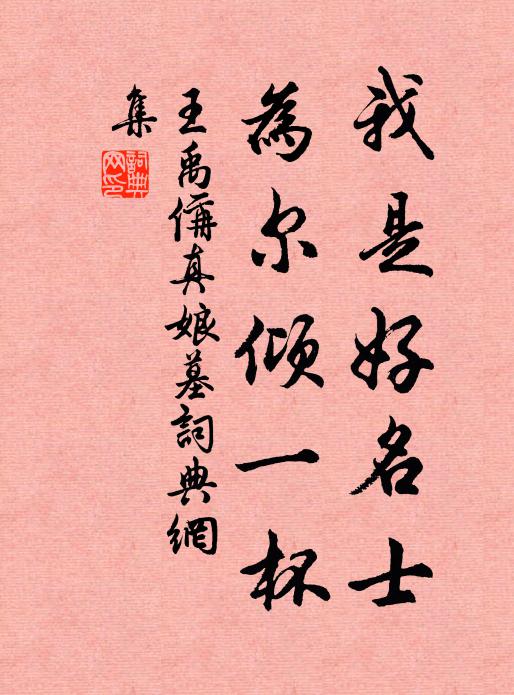 我是好名士
為尔傾一杯
王禹偁真娘墓詞典網
集
詞典
网印